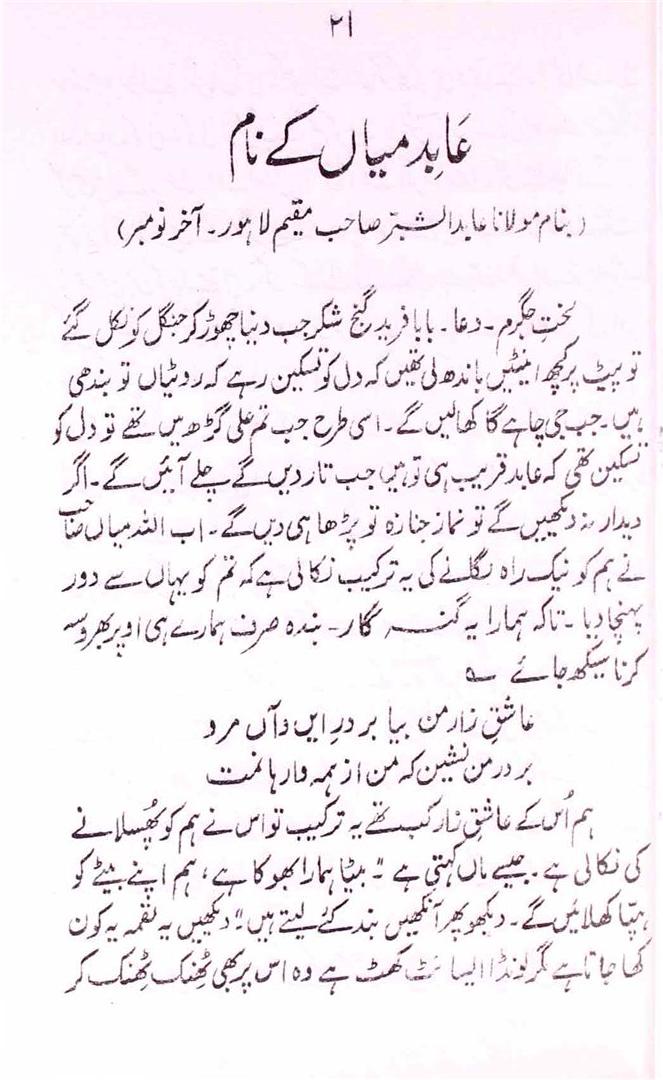 ۲۱
عَابِد میاں کے نام
(بنام مولانا عابد الشبر صاحب مقیم لاہور۔ آخر نومبر)
لختِ جگرم۔ دعا۔ بابا فرید گنج شکر جب دنیا چھوڑ کر جنگل کو نکل گئے
تو پیٹ پر کچھ اینٹیں باندھ لی تھیں کہ دل کو تسکین رہے کہ روٹیاں تو بندھی
ہیں۔ جب جی چاہے گا کھالیں گے۔ اسی طرح جب تم علی گڑھ میں تھے تو دل کو
تسکین تھی کہ عابد قریب ہی تو ہیں جب تار دیں گے چلے آئیں گے۔ اگر
دیدار نہ دیکھیں گے تو نماز جنازہ تو پڑھا ہی دیں گے۔ اب اللہ میاں صاحب
نے ہم کو نیک راہ لگانے کی یہ ترکیب نکالی ہے کہ تم کو یہاں سے دور
پہنچادیا۔ تاکہ ہمارا یہ گنہ گار۔ بندہ صرف ہمارے ہی اوپر بھروسہ
کرنا سیکھ جائے ؎
عاشقِ زار من بیا بر درِ ایں و آں مرو
بر در من نشین کہ من از ہمہ وارہانمت
ہم اُس کے عاشقِ زار کب تھے یہ ترکیب تو اس نے ہم کو پُھسلانے
کی نکالی ہے۔ جیسے ماں کہتی ہے "بیٹا ہمارا بھوکا ہے، ہم اپنے بیٹے کو
ہپا کھلائیں گے۔ دیکھو پھر آنکھیں بند کئے لیتے ہیں" دیکھیں یہ لقمہ یہ کون
کھا جاتا ہے مگر لونڈا ایسا نٹ کھٹ ہے وہ اس پر بھی ٹُھنک ٹُھنک کر